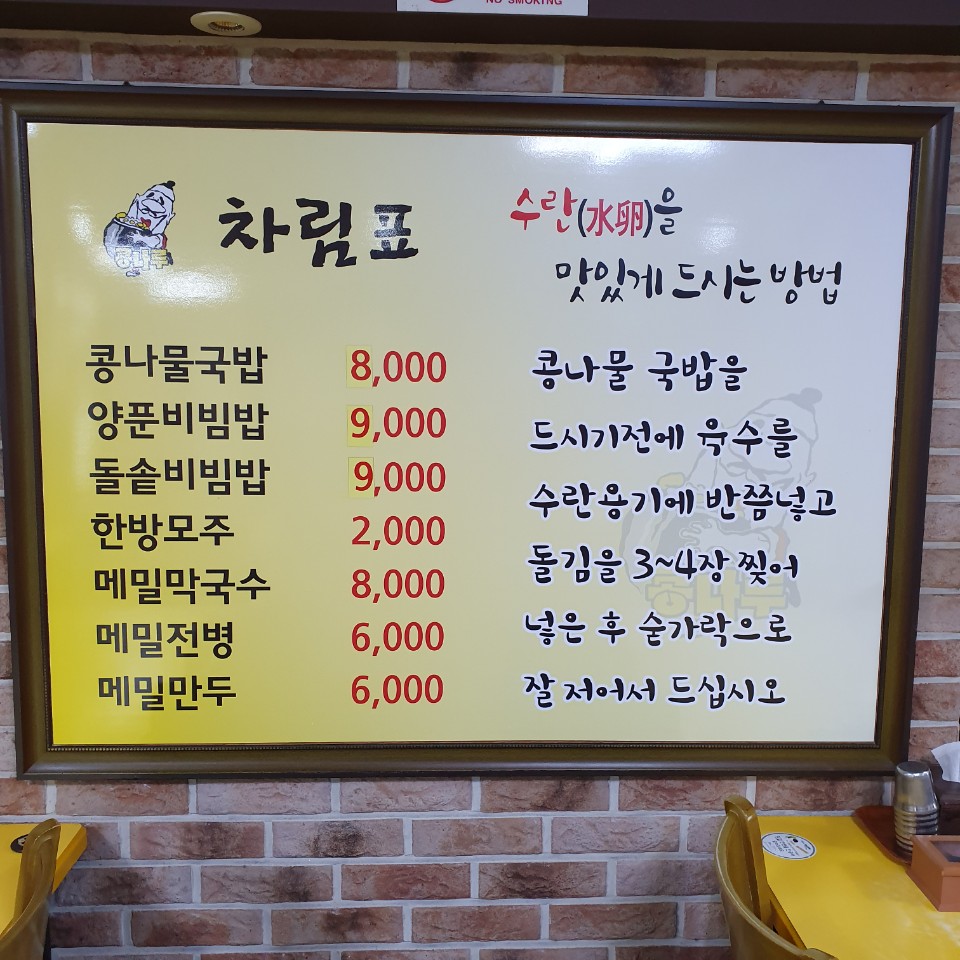 NO SMOKING
차림표
콩나물국밥 8,000
양푼비빔밥 9,000
돌솥비빔밥 9,000
한방모주 2,000
메밀막국수 8,000
메밀전병 6,000
메밀만두 6,000
수란(水卵)을
맛있게 드시는 방법
콩나물 국밥을
드시기전에 육수를
수란용기에 반쯤넣고
돌김을 3~4장 찢어
넣은 후 숟가락으로
잘 저어서 드십시오